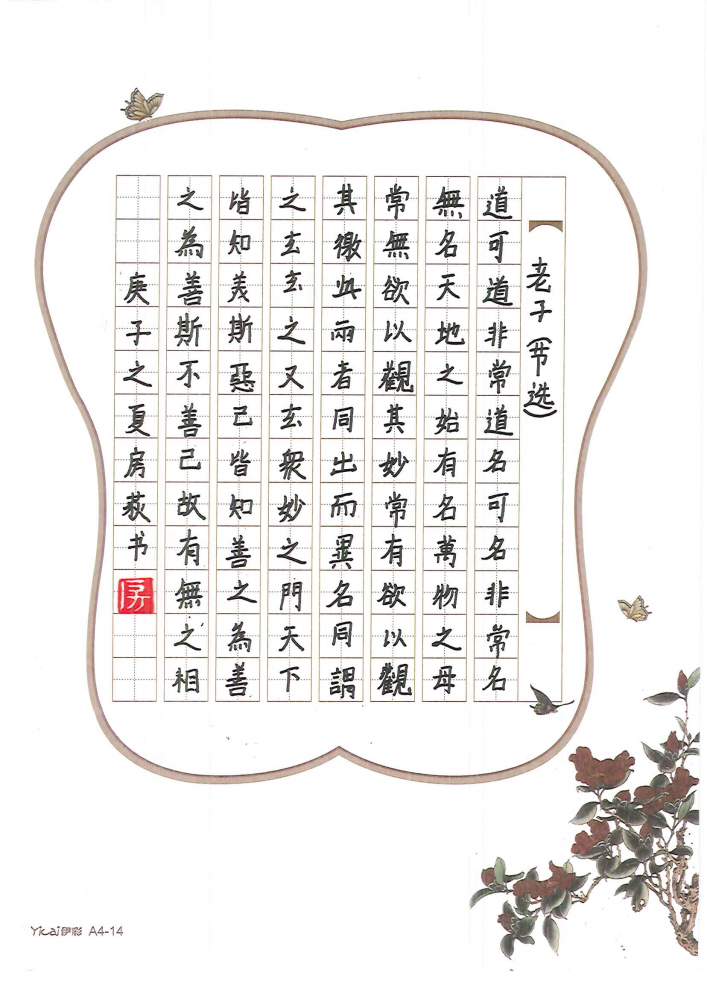 老子（节选）
道可道非常道名可名非常名
無名天地之始有名萬物之母
常無欲以觀其妙常有欲以觀
其徼此兩者同出而異名同謂
之玄玄之又玄衆妙之門天下
皆知美斯惡已皆知善之為善
之為善斯不善已故有無之相
庚子之夏房荻书
房
Yicai伊彩 A4-14